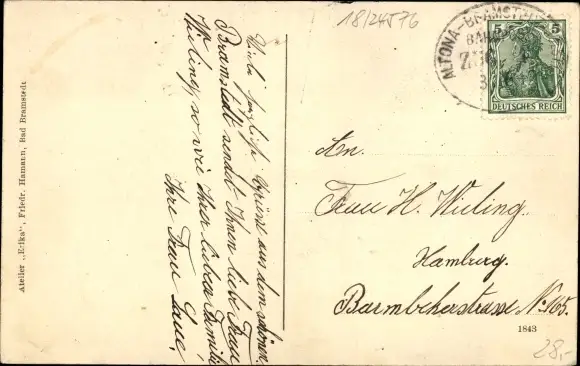 18/24J76
ALTONA-BRAMSTEDT
BAHN
ZUG
5 5
DEUTSCHES REICH
Viele herzliche Grüsse aus dem schönen
Bramstedt sendet Ihnen liebe Frau
Wieling, so wie Ihrer lieben Familie
Ihre Frau Laue.
An.
Frau H. Wieling.
Hamburg.
Barmbekerstrasse No 165.
1843
28,-
Atelier „Erika", Friedr. Hamann, Bad Bramstedt